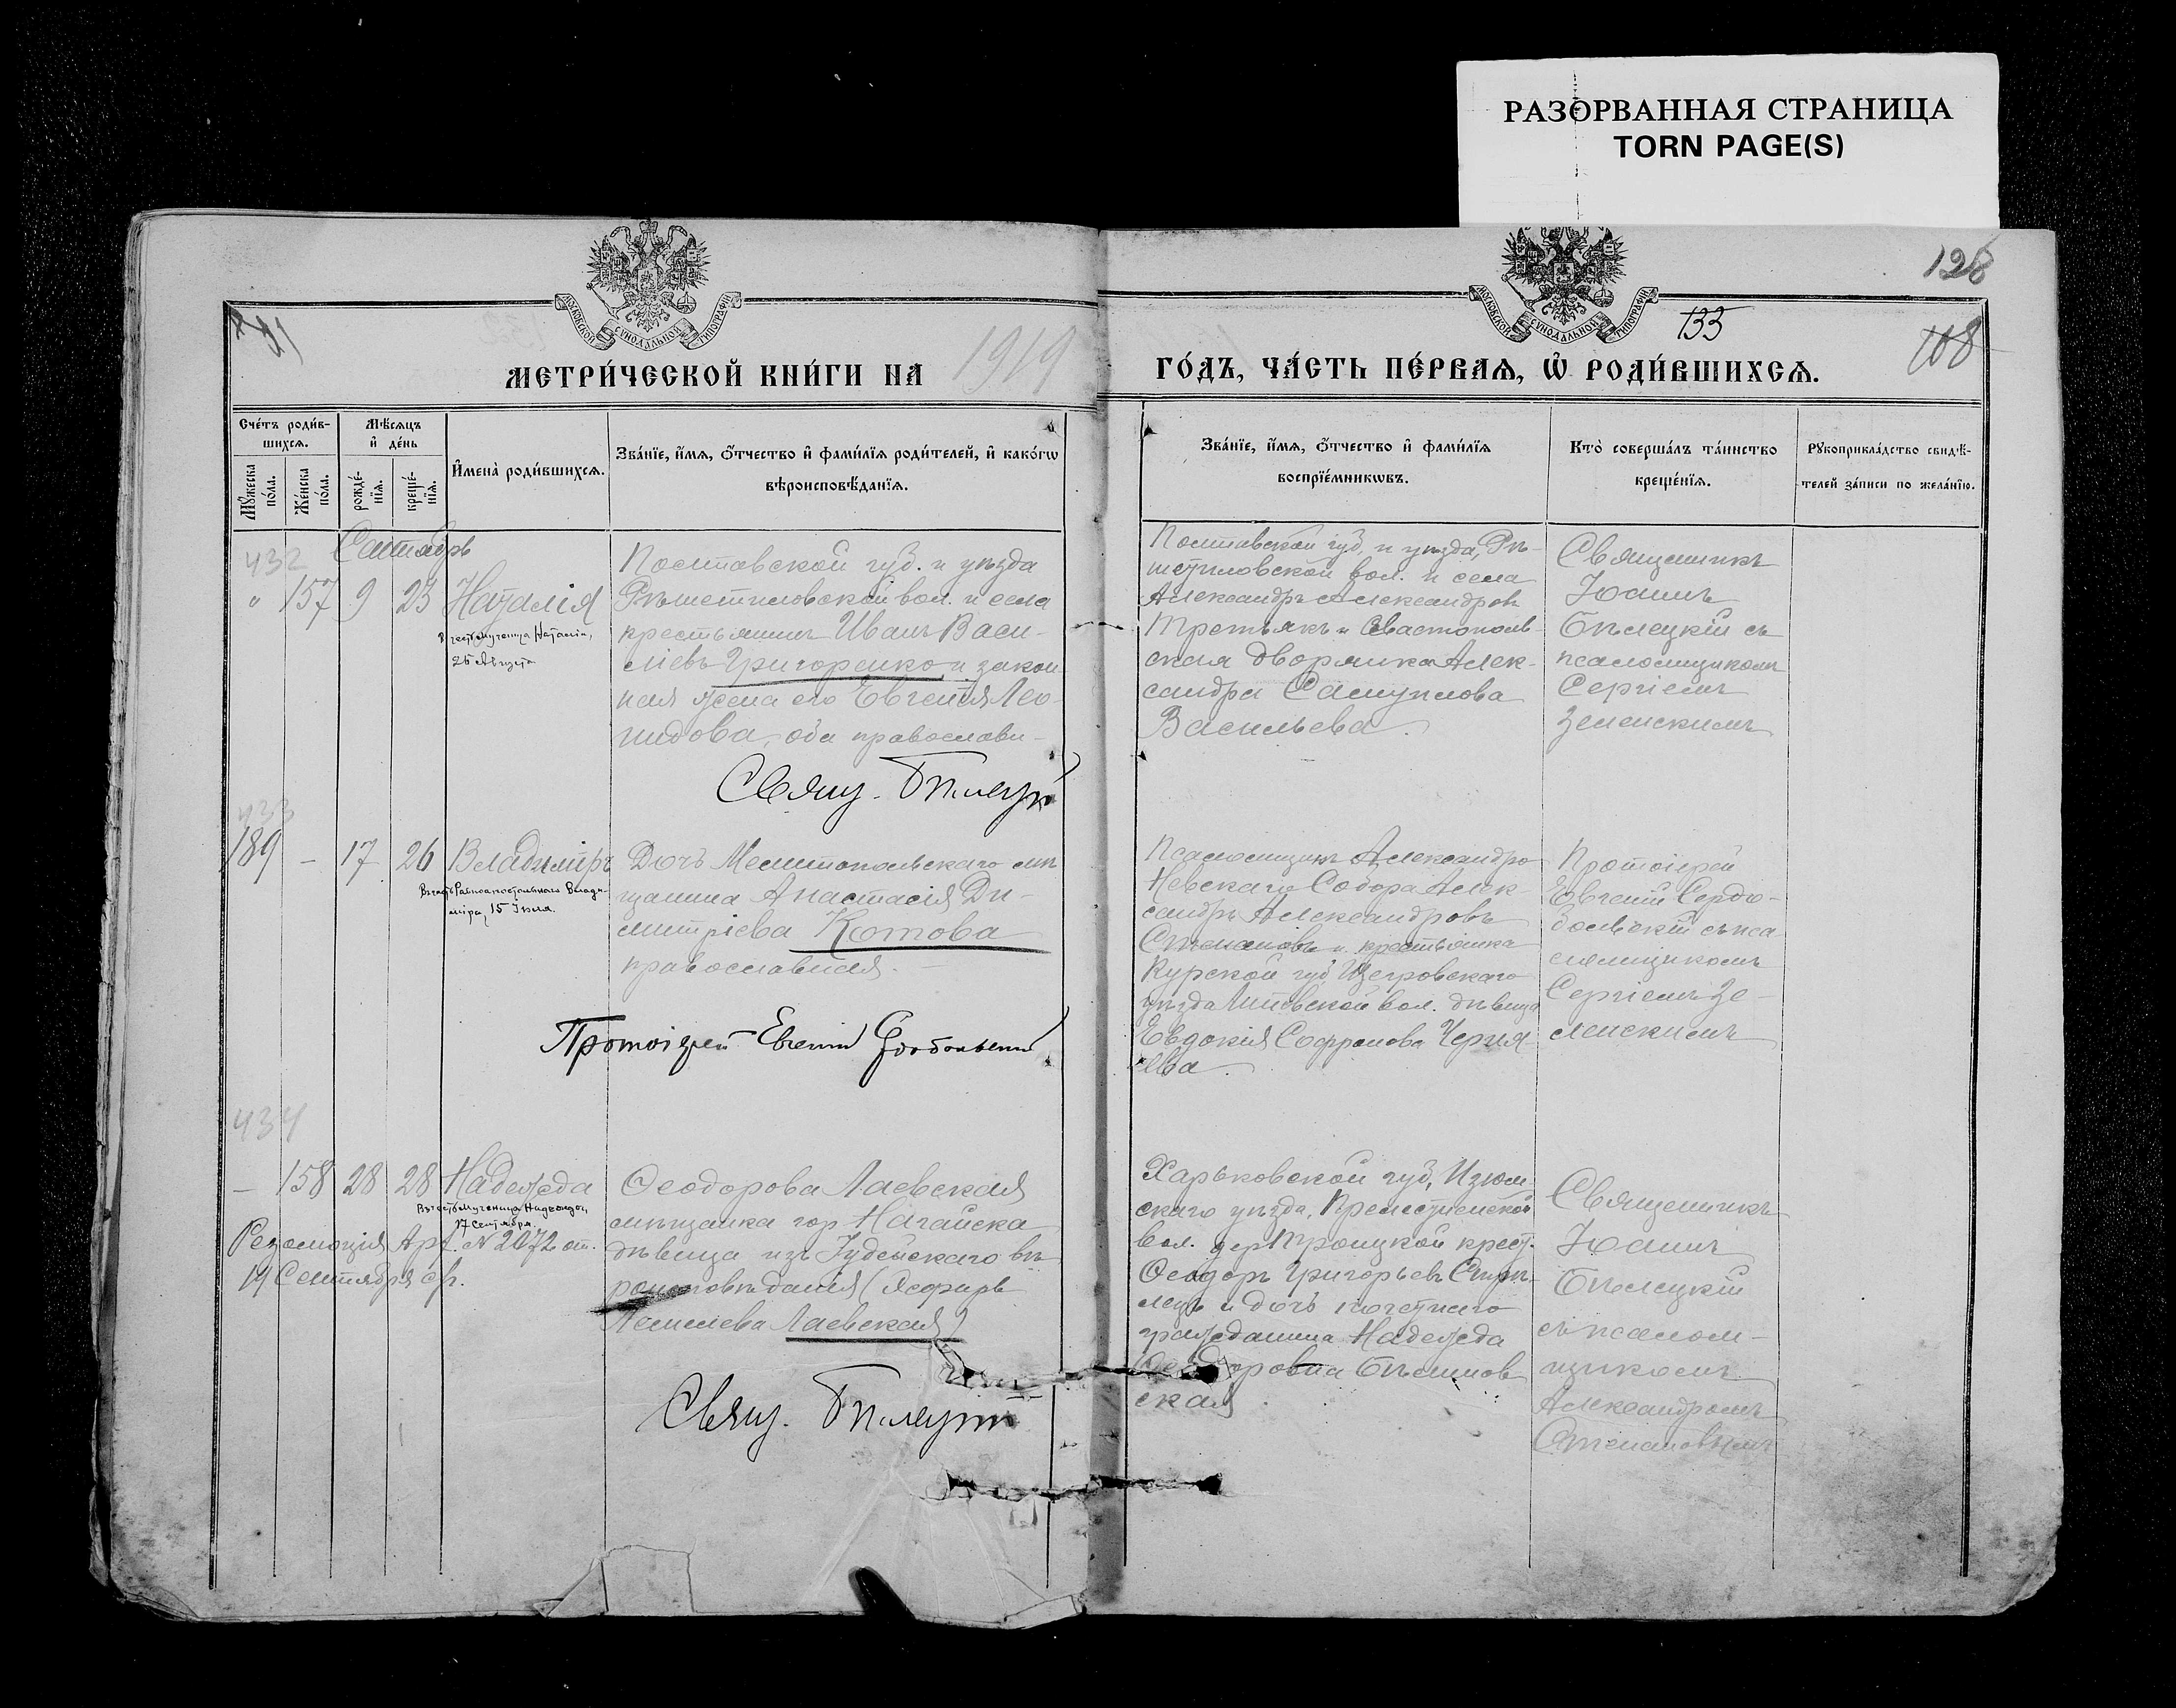 РАЗОРВАННАЯ СТРАНИЦА
TORN PAGE(S)
128
МОСКОВСКОЙ СѴНОДАЛЬНОЙ ТИПОГРАФІИ
МОСКОВСКОЙ СѴНОДАЛЬНОЙ ТИПОГРАФІИ
133
108
МЕТРИ́ЧЕСКОЙ КНИ́ГИ НА 1919
ГО́ДЪ, ЧА́СТЬ ПЕ́РВАЯ, Ѡ҆ РОДИ́ВШИХСЯ.
Сче́тъ роди́в-
шихсѧ.
Мꙋ́жеска по́ла.
Же́нска по́ла.
Мѣ́сѧцъ
и҆ де́нь
рожде́-
нїѧ.
креще́-
нїѧ.
И҆мена̀ роди́вшихсѧ.
Зва́нїе, и҆́мѧ, ѻ҆́тчество и҆ фами́лїѧ роди́телей, и҆ како́гѡ
вѣроисповѣ́данїѧ.
Зва́нїе, и҆́мѧ, ѻ҆́тчество и҆ фами́лїѧ
воспрїе́мникѡвъ.
Кто̀ соверша́лъ та́инство
креще́нїѧ.
Рꙋкоприкла́дство свидѣ́-
телей за́писи по жела́нїю.
432 Сентябрь
" 157 9 23 Наталія
Въ честь мученицы Наталіи,
26 Августа
Полтавской губ. и уѣзда
Рѣшетиловской вол. и села
крестьянинъ Иванъ Васи-
ліевъ Григоренко и закон-
ная жена его Евгенія Лео-
нидова, оба православн-
Свящ. Бѣлецкій
Полтавской губ. и уѣзда, Рѣ-
шетиловской вол. и села
Александръ Александровъ
Третьякъ и Севастополь-
ская дворянка Алек-
сандра Самуилова
Васильева.
Священникъ
Іоаннъ
Бѣлецкій съ
псаломщикомъ
Сергіемъ
Зеленскимъ
433
189 - 17 26 Владиміръ
Въ честь Равноапостольнаго Влади-
міра, 15 Іюля.
Дочь Мелитопольскаго мѣ-
щанина Анастасія Ди-
митріева Котова
православная.
Протоіерей Евгеній Сердобольскій
Псаломщикъ Александро
Невскаго Собора Алек-
сандръ Александровъ
Степановъ и крестьянка
Курской губ. Щегровскаго
уѣзда Липовской вол. дѣвица
Евдокія Софронова Черня-
ева.
Протоіерей
Евгеній Сердо-
больскій съ пса-
ломщикомъ
Сергіемъ Зе-
ленскимъ
434
- 158 28 28 Надежда
Въ честь мученицы Надежды,
17 Сентября.
Резолюція Арх. № 2072 от.
19 Сентября с/г.
Ѳеодорова Лаевская
мѣщанка гор Ногайска
дѣвица изъ Іудейскаго вѣ-
роисповѣданія (Эсфирь
Лаевская)
Свящ. Бѣлецкій
Харьковской губ, Изюм-
скаго уѣзда,
вол. дер Троицкой крест.
Ѳеодоръ Григорьевъ
и дочь почетнаго
гражданина Надежда
Ѳеодоровна
ская
Священникъ
Іоаннъ
Бѣлецкій
съ псалом-
щикомъ
Александромъ
Степановымъ